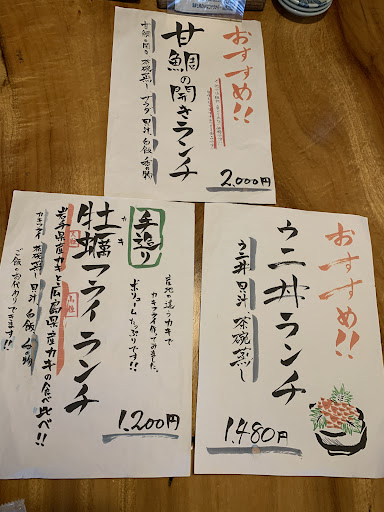 おすすめ!!
甘鯛の開きランチ
甘鯛の開き 茶碗蒸し サラダ 果汁 白飯 香の物
2,000円
手造り
牡蠣フライランチ
カキ
産地の違うカキで
カキフライ作ってみました。
ボリュームたっぷりです!!
岩手県産カキと広島県産カキの食べ比べ!!
カキフライ 茶碗蒸し 果汁 白飯 香の物
ご飯の お代わり
できます!!
1,200円
おすすめ!!
ウニ丼ランチ
ウニ丼 果汁 茶碗蒸し
1,480円